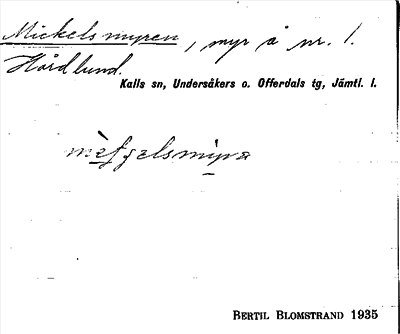 Mickelsmyren, myr å nr. 1.
Hårdlund.
Kalls sn, Undersåkers o. Offerdals tg, Jämtl. l.
BERTIL BLOMSTRAND 1935